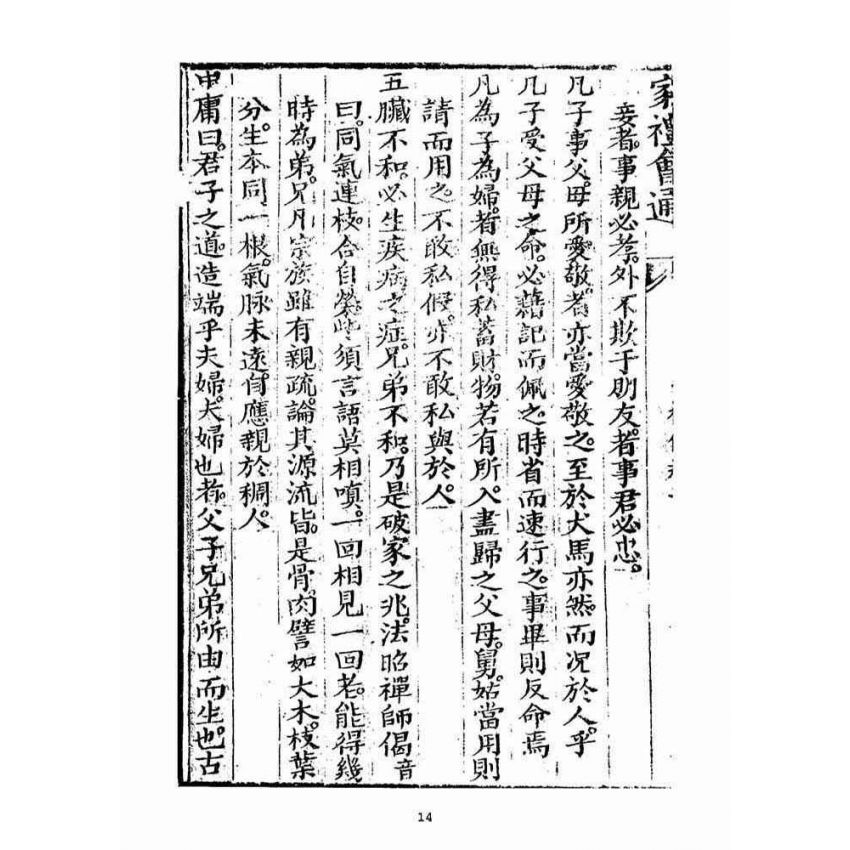 家禮會通
妾者。事親必孝。外不欺于朋友。者事君必忠。
凡子事父。母所愛敬。者亦當愛敬之。至於犬馬亦然。而况於人。乎
凡子受父母之命。必籍記而佩之時省而速行之。事畢則反命焉
凡為子為婦。者無得私蓄財。物若有所入盡歸之父母。舅姑當用則
請而用之不敢私假。亦不敢私與於人。
五臟不和。必生疾病之症。兄弟不和。乃是破家之兆。法昭禪師偈音
曰。同氣連枝。合自榮。些須言語莫相嗔。一回相見一回老。能得幾
時為弟。兄凡宗族雖有親疏。論其源流皆。是骨肉譬如大木。枝葉
分生。本同一根。氣脉未遠。自應親於稠人。
中庸曰。君子之道。造端乎夫婦。夫婦也者。父子兄弟所由而生也。古
14